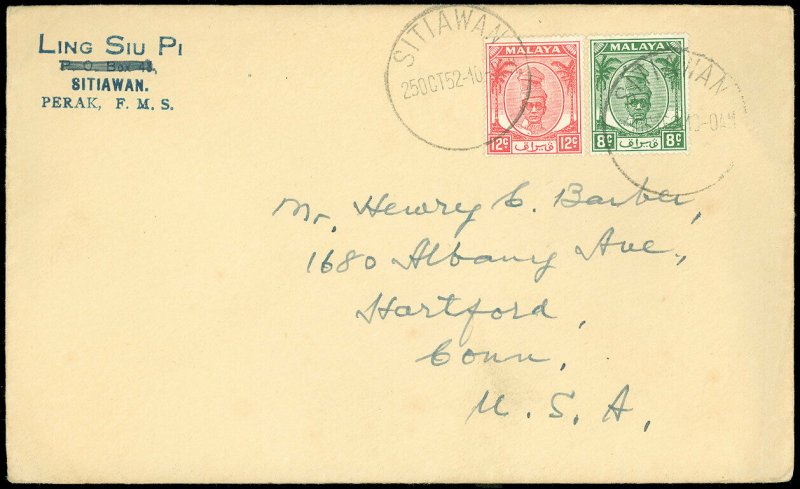 LING SIU PI
P. O. Box 48,
SITIAWAN.
PERAK, F. M. S.
SITIAWAN
25 OCT 52-10
MALAYA
12c 12c
MALAYA
8c فيراق 8c
SITIAWAN
Mr. Henry C. Barber,
1680 Albany Ave,
Hartford,
Conn,
U. S. A.